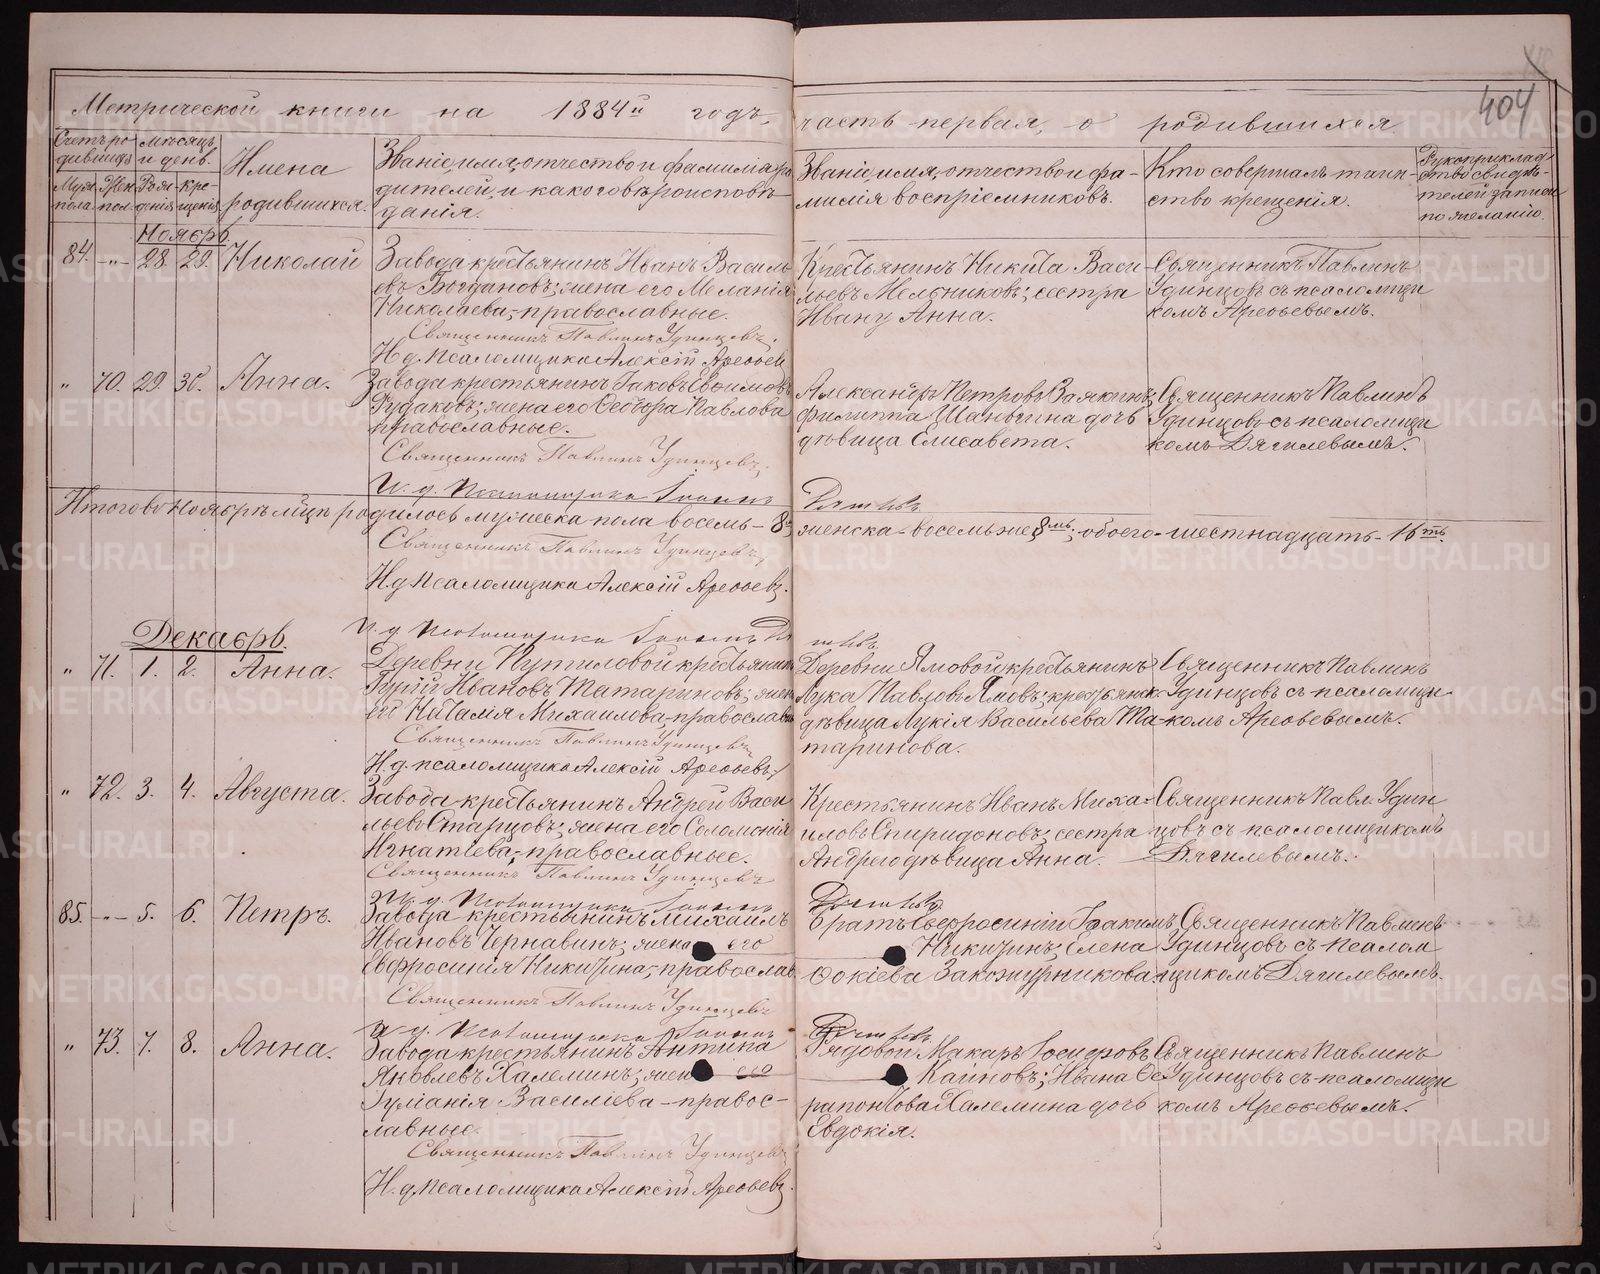 404
Метрической книги на 1884й годъ, часть первая, о родившихся
Счетъ родившихся
Мѣсяцъ и день.
Муж. пола.
Жен. пол.
Рожденія
крещенія
Имена родившихся.
Званіе, имя, отчество и фамилія родителей, и какого вѣроисповѣданія.
Званіе, имя, отчество и фамилія воспріемниковъ.
Кто совершалъ таинство крещенія.
Рукоприкладство свидѣтелей записи по желанію.
Ноябрь.
84. -"- 28. 29. Николай
Завода крестьянинъ Иванъ Василь
евъ Богдановъ; жена его Меланія
Николаева, православные.
Священникъ Павлинъ Удинцевъ.
И д. псаломщика Алексій Арефьев
Крестьянинъ Никита Васи
льевъ Мельниковъ; сестра
Ивану Анна.
Священникъ Павлинъ
Удинцовъ съ псаломщи
комъ Арефьевымъ.
" 70. 29. 30. Анна.
Завода крестьянинъ Іаковъ Евѳимовъ
Рудаковъ; жена его Ѳеодора Павлова
православные.
Священникъ Павлинъ Удинцевъ.
И. д. Псаломщика Іоаннъ Дягилевъ
Александръ Петровъ Вяткинъ;
Филиппа Шаньгина дочь
дѣвица Елисавета.
Священникъ Павлинъ
Удинцовъ съ псаломщи
комъ Дягилевымъ.
Итого въ Ноябрѣ мѣцѣ родилось мужеска пола восемь - 8ъ, женска - восемь же 8мь; обоего - шестнадцать - 16ть.
Священникъ Павлинъ Удинцевъ,
И д псаломщика Алексій Арефьевъ.
И. д псаломщика Іоаннъ Дягилевъ
Декабрь.
" 71. 1. 2. Анна.
Деревни Путиловой крестьянинъ
Гурій Ивановъ Татариновъ; жен
Наталія Михаилова, православн
Священникъ Павлинъ Удинцевъ
И д. псаломщика Алексій Арефьевъ
Деревни Ямовой крестьянинъ
Лука Павловъ Ямовъ; крестьянск.
дѣвица Лукія Васильева Та
таринова.
Священникъ Павлинъ
Удинцовъ съ псаломщи
комъ Арефьевымъ.
" 72. 3. 4. Августа.
Завода крестьянинъ Андрей Васи
льевъ Старцовъ; жена его Соломонія
Игнатіева, православные.
Священникъ Павлинъ Удинцевъ
И. д. Псаломщика Іоаннъ Дягилевъ
Крестьянинъ Иванъ Миха
иловъ Спиридоновъ; сестра
Андрею дѣвица Анна.
Священникъ Павл. Удин
цовъ съ псаломщикомъ
Дягилевымъ.
85. -"- 5. 6. Петръ.
Завода крестьянинъ Михаилъ
Ивановъ Чернавинъ; жена его
Евфросинія Никитина, православ
Священникъ Павлинъ Удинцевъ
И д. Псаломщика Іоаннъ Дягилевъ
Братъ Евфросиніи Іоакимъ
Никитинъ; Елена
Фокіева Закожурникова
Священникъ Павлинъ
Удинцовъ съ псалом
щикомъ Дягилевымъ.
" 73. 7. 8. Анна.
Завода крестьянинъ Антипа
Яковлевъ Халеминъ; жена его
Іуліанія Василіева - правос-
лавные.
Священникъ Павлинъ Удинцевъ
И. д. псаломщика Алексій Арефьевъ.
Рядовой Макаръ Іосифовъ
Каиновъ; Ивана Фе
рапонтова Халемина дочь
Евдокія.
Священникъ Павлинъ
Удинцовъ съ псаломщи
комъ Арефьевымъ.
METRIKI.GASO-URAL.RU